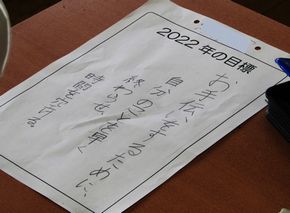 2022年の目標
お手伝いをするために、
自分のことを早く
終わらせ
時間をたてる。